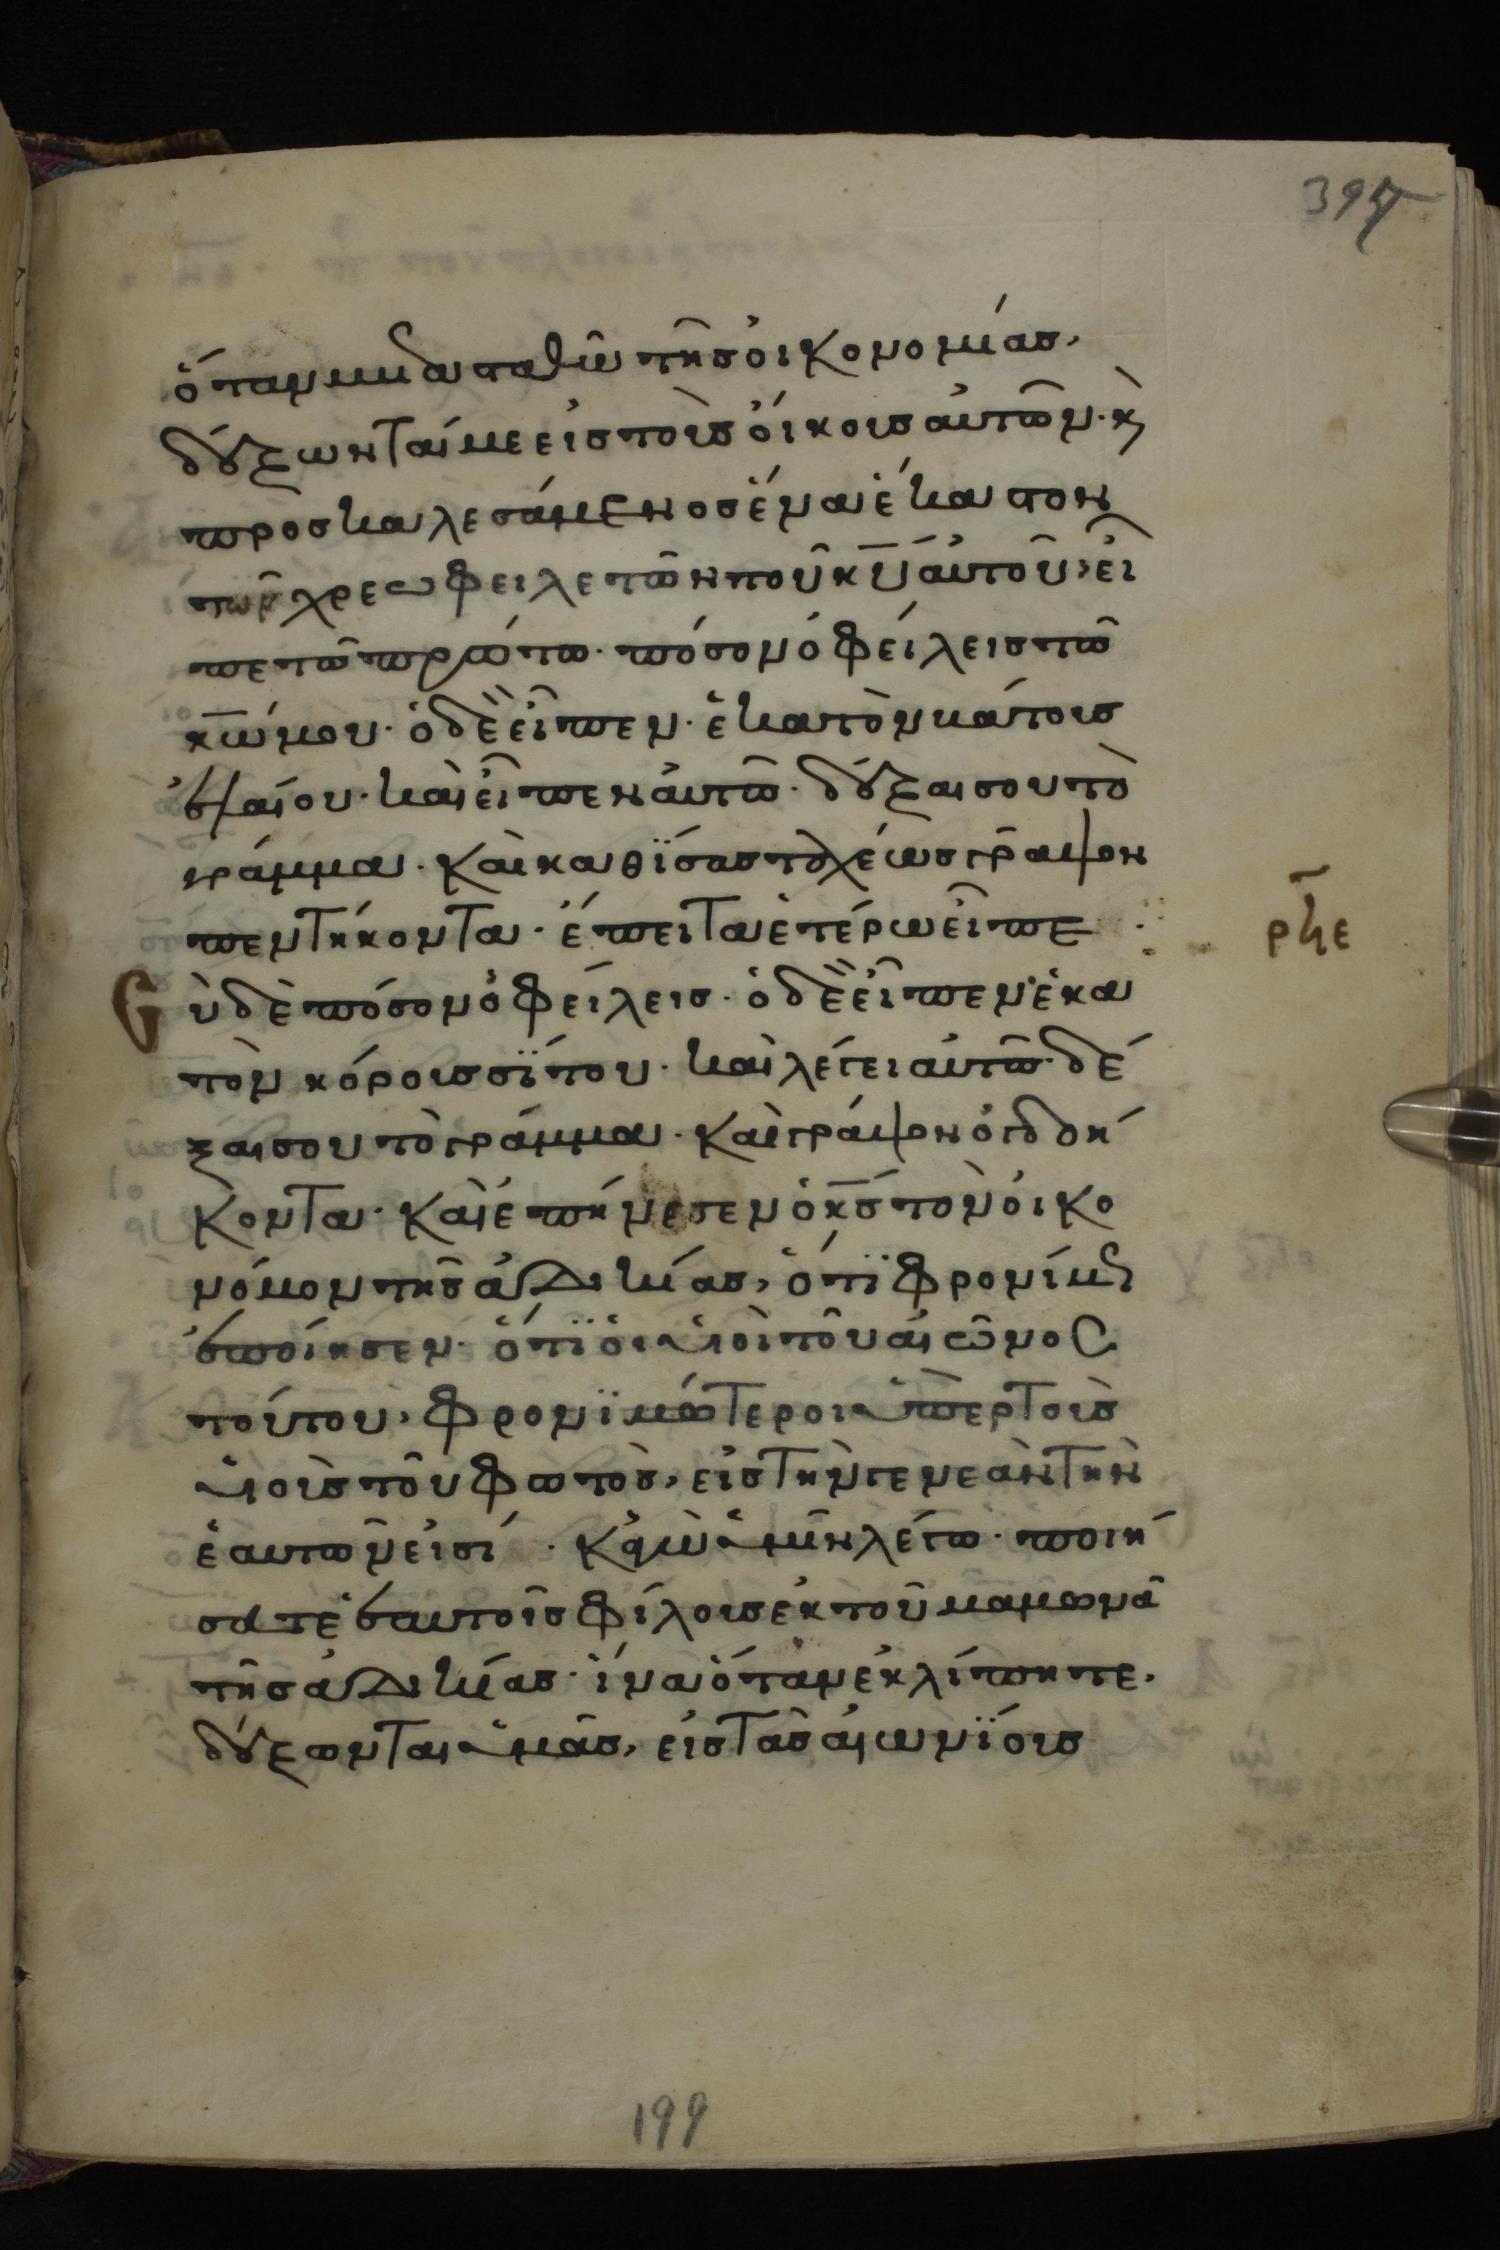 397
ὅταν μετασταθῶ τῆς οἰκονομίας,
δέξωνταί με εἰς τοὺς οἴκους αὐτῶν· κ̀
προσκαλεσάμενος ἕνα ἕκαστον
τῶν χρεωφειλετῶν τοῦ κ̅υ̅ αὐτοῦ, εἶ
πε τῶ πρώτω· πόσον ὀφείλεις τῶ
κ̅ω̅ μου· ὁ δὲ εἶπεν· ἑκατὸν κάτους
ἐλαίου· καὶ εἶπεν αὐτῶ· δέξαι σου τὸ
γράμμα· καὶ καθΐσας ταχέως γράψον
πεντήκοντα· ἔπειτα ἑτέρω εἶπε
Cὺ δὲ πόσον ὀφείλεις· ὁ δὲ εἶπεν ἑκα
τὸν κόρους σΐτου· καὶ λέγει αὐτῶ· δέ
ξαι σου τὸ γράμμα· καὶ γράψον ὀγδοή
κοντα· καὶ ἐπήνεσεν ὁ κ̅ς̅ τὸν οἰκο
νόμον τῆς ἀδικίας, ὅτϊ φρονίμως
ἐποίησεν· ὅτϊ οἱ υἱοὶ τοῦ αἰῶνος
τούτου, φρονϊμώτεροι ὑπὲρ τοὺς
υἱοὺς τοῦ φωτὸς, εἰς τὴν γενεὰν τὴν
ἑαυτῶν εἰσί· κἀγὼ ὑμῖν λέγω· ποιή
σατε ἑαυτοῖς φίλους ἐκ τοῦ μαμωνᾶ
τῆς ἀδικίας· ἵνα ὅταν ἐκλίπητε,
δέξωνται ὑμᾶς, εἰς τὰς αἰωνΐους
ρϟε
199